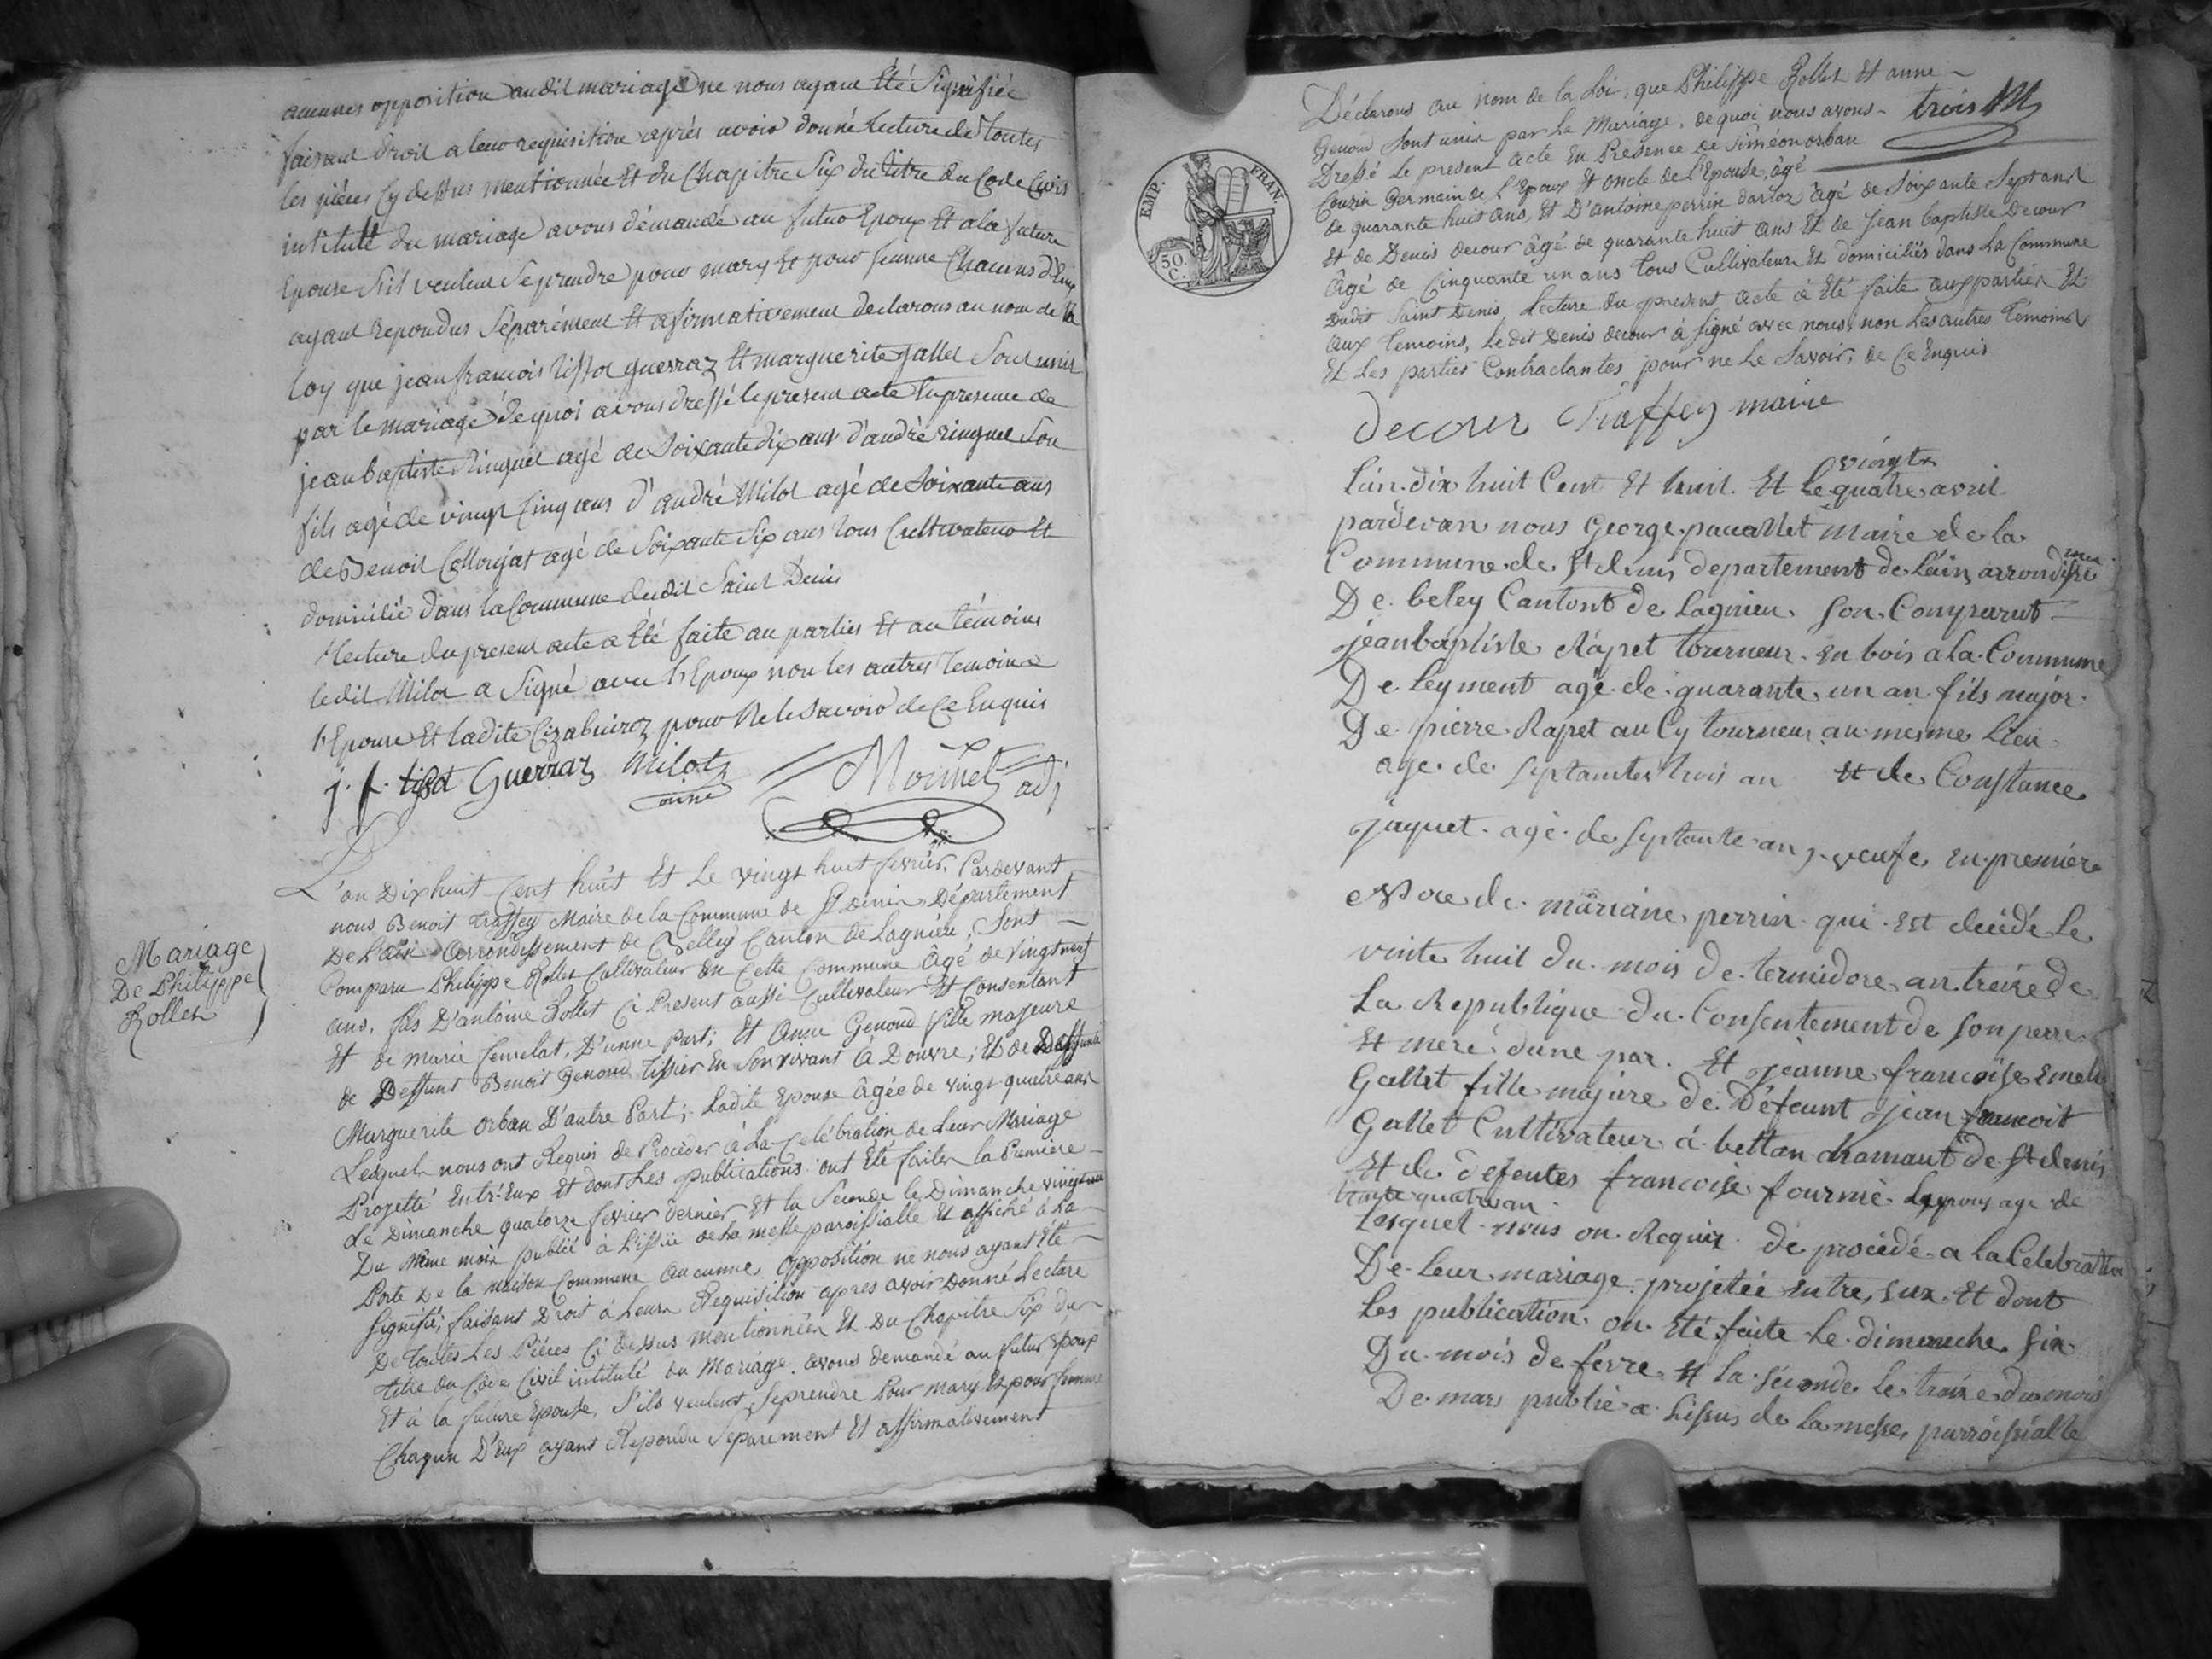 aucunes opposition audit mariage ne nous ayant Eté Signifiée
faisant droit a leur requisition après avoir donné Lecture de Toutes
les pièces Cy dessus mentionnée Et du Chapitre Six du Titre du Code Civis
intitulé du mariage avons demandé au futur Epoux Et a la future
Epouse S'ils veulent Se prendre pour mary Et pour femme Chacuns d'Eux
ayant repondus Séparément Et afirmativement declarons au nom de la
loy que jean francois tissot guerraz Et marguerite gallet Sont unis
par le mariage de quoi avons dressé le present acte En presence de
jean Baptiste Ringuet agé de Soixante dix ans d'andré ringuet Son
fils agé de vingt Cinq ans d'andré Milot agé de Soixante ans
de Benoit Collonjat agé de Soixante Six ans tous Cultivateur Et
domicilié dans la Commune dudit Saint Denis
Lecture du present acte a Eté faite au parties Et au témoins
ledit Milot a Signé avec l'Epoux non les autres Temoins
l'Epouse Et ladite pour ne le Savoir de Ce Enquis
j. f. tisot Guerraz Milot Monnet adj
L'an Dix huit Cent huit Et Le vingt huit fevrier, Pardevant
nous Benoit Traffey Maire de la Commune de St Denis, Département
De L'ain Arrondissement de Belley Canton de Lagnieu, Sont
Comparu Philippe Rollet Cultivateur En Cette Commune Âgé de Vingt neuf
ans, fils D'antoine Rollet Ci Present aussi Cultivateur Et Consentant
Et de Marie D'unne Part; Et Anne Genoud fille majeure
de Deffunt Benoit Genoud Tissier En Son vivant à Douvre; Et de Deffunte
Marguerite Orban D'autre Part; Ladite Epouse Âgée de vingt quatre ans
Mariage
De Philippe
Rollet
Lesquels nous ont Requis de Procèder à La Celébration de Leur Mariage
Projetté Entr'Eux Et dont Les publications ont Eté faites la Premiere
Le Dimanche quatorze fevrier dernier Et la Seconde le Dimanche vingt un
Du Même mois publié à L'issüe de La messe paroissialle Et affiché à La
Porte De la Maison Commune Aucunne Opposition ne nous ayant Eté
Signifié, faisant Droit à Leurs Requisition apres avoir Donné Lecture
De Toutes Les Piéces Ci dessus mentionnées Et Du Chapitre Six du
Titre du Côde Civil intitulé du Mariage. avons demandé au futur Epoux
Et à la future Epouse, S'ils veulent Se prendre Pour Mary Et pour femme
Chaqun D'Eux ayant Repondu Séparement Et affirmativement
EMP. FRAN.
50. C.
Déclarons au nom de la Loi, que Philippe Rollet Et anne
Genoud Sont unis par Le Mariage, de quoi nous avons trois
Dressé Le present acte En Présence de Siméon orban
Couzin Germain de L'Epoux Et oncle de L'Epouse, âgé
de quarante huit ans, Et D'antoine perrin dartoz âgé de Soixante Sept ans
Et de Denis decour âgé de quarante huit ans Et de Jean baptiste Decour
Âgé de Cinquante un ans Tous Cultivateurs Et domiciliés dans La Commune
Dudit Saint Denis, Lecture du present acte à Eté faite aux parties Et
aux Temoins, Le dit Denis decour à signé avec nous, non Les autres Témoins
Et Les parties Contractantes pour ne Le Savoir, de Ce Enquis
Decour Traffey maire
vingt
L'an dix huit Cent Et huit. Et Le quatre avril
pardevan nous George maire de la
men
Commune de St denis departement de L'ain, arrondisse
De beley Cantont de Lagnieu. Son Comparut
jean baptiste Rapet tourneur en bois a La Commune
De leyment agé de quarante un an fils major
De pierre Rapet au Cy tourneur au mesme Lieu
age de septante trois an Et de Constance
jaquet age de septante an, veufe en premiere
de mariane perrin qui Est decédé Le
vinte huit du mois de termidore an treize de
La Republique du Consentement de son perre
Et meré dune par. Et jeanne francoise
Gallet fille majure de Défeunt jean francoit
Gallet Cultivateur á bettan de St denis
Et de defentes francoise fourmié Lepous age de
trante quatre an
Lesquel nous on Requis de procédé a La Celebration
De leur mariage projetée entre, eux Et dont
Les publication on Eté faite Le dimanche six
Du mois de fevre Et la séconde le treize du mois
De mars publié a Lissus de La messe, parroissialle